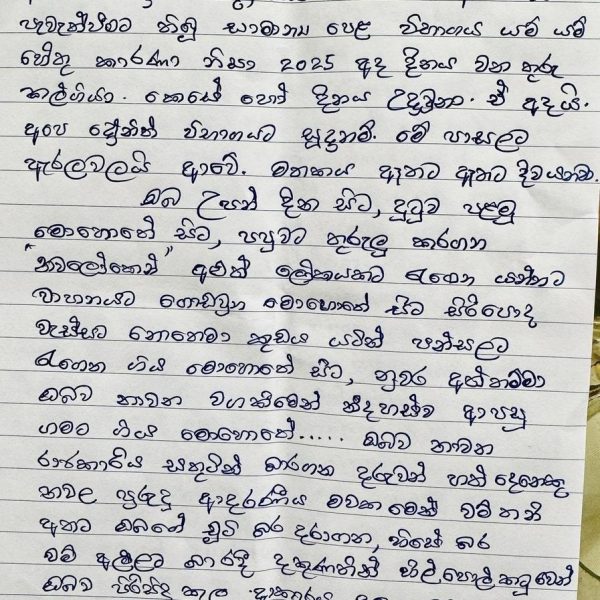 පැවැත්වීමට තිබූ සාමාන්‍ය පෙළ විභාගය යම් යම්
හේතු කාරණා නිසා 2025 අද දිනය වන තුරු
කල්ගියා. කෙසේ හෝ දිනය උදාවුනා. ඒ අදයි.
අපෙ දෝනිත් විභාගයට සූදානම්. මේ පාසලට
ඇරලවලයි ආවේ. මතකය ඈතට ඈතට දිවයනවා.
ඔබ උපන් දින සිට, දුටුව පළමු
මොහොතේ සිට, පපුවට තුරුලු කරගන
"නවලෝකෙන්" අළුත් ලෝකයකට රැගෙන යන්නට
වාහනයට ගොඩවුන මොහොතේ සිට සිරිපොද
වැස්සට නොතෙමා කුඩය යටින් පන්සලට
රැගෙන ගිය මොහොතේ සිට, නුවර අත්තම්මා
ඔබව නාවන වගකීමෙන් නිදහස්ව ආපසු
ගමට ගිය මොහොතේ..... ඔබව නාවන
රාජකාරිය සතුටින් බාරගන දරුවන් හත් දෙනෙකු
නවල පුරුදු ආදරණීය මවක මෙන් වම් තනි
අතට ඔබගේ චූටි බර දරාගන, හිසේ බර
වම් අල්ලට බාරදී දකුණතින් හිල් පොල් කටුවෙන්
ඔබව පිරිසිදු කල ආකාරය